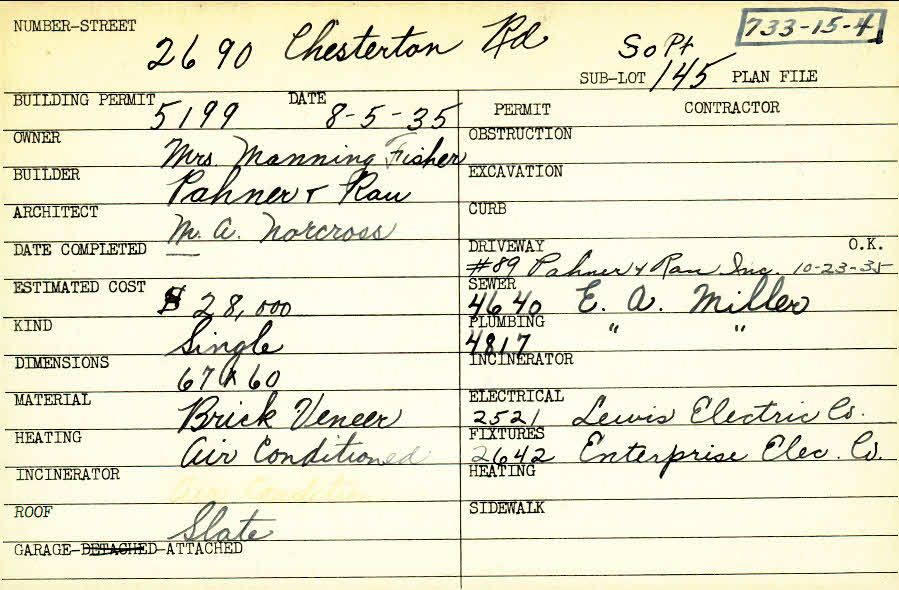 NUMBER-STREET 2690 Chesterton Rd So Pt 733-15-4
SUB-LOT 145 PLAN FILE
BUILDING PERMIT 5199 DATE 8-5-35
OWNER Mrs. Manning Fisher
BUILDER Pahner & Rau
ARCHITECT M. A. Norcross
DATE COMPLETED —
ESTIMATED COST $ 28,000
KIND Single
DIMENSIONS 67 X 60
MATERIAL Brick Veneer
HEATING Air Conditioned
INCINERATOR
ROOF Slate
GARAGE-DETACHED-ATTACHED
PERMIT CONTRACTOR
OBSTRUCTION
EXCAVATION
CURB
DRIVEWAY O.K.
#89 Pahner & Rau Inc. 10-23-35
SEWER
4640 E. A. Miller
PLUMBING
4817 " "
INCINERATOR
ELECTRICAL
2521 Lewis Electric Co.
FIXTURES
2642 Enterprise Elec. Co.
HEATING
SIDEWALK